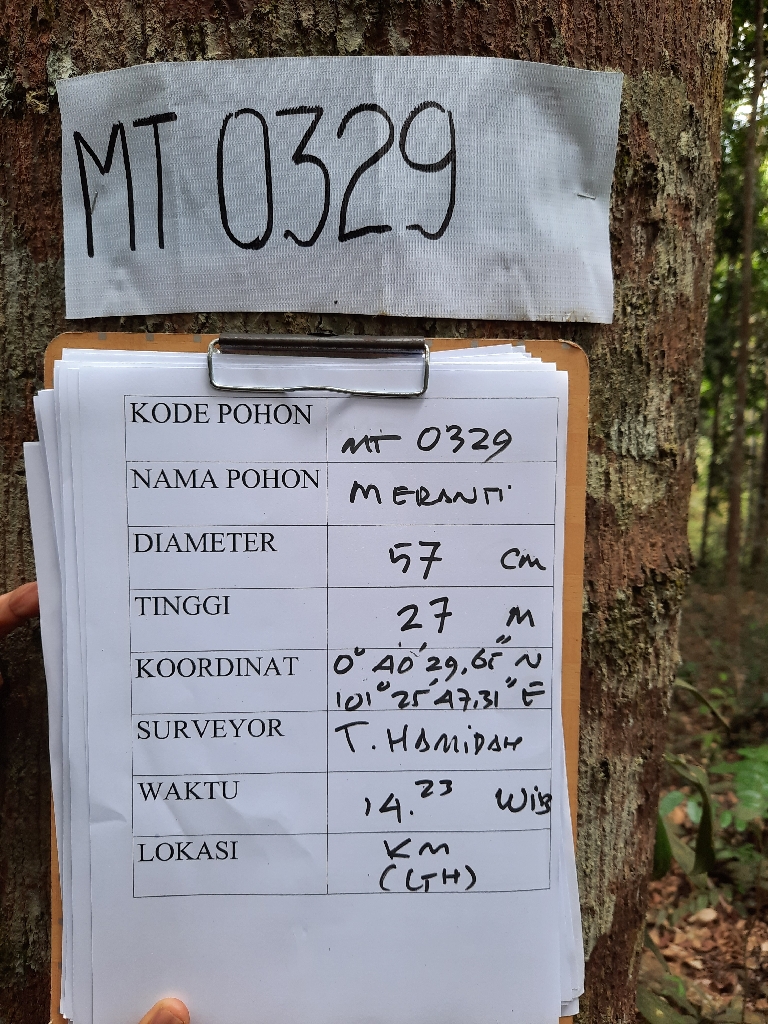 MT 0329
KODE POHON MT 0329
NAMA POHON MERANTI
DIAMETER 57 cm
TINGGI 27 M
KOORDINAT 0° 40' 29,65" N
101° 25' 47,31" E
SURVEYOR T. HAMIDAH
WAKTU 14.23 WIB
LOKASI KM
(LTH)